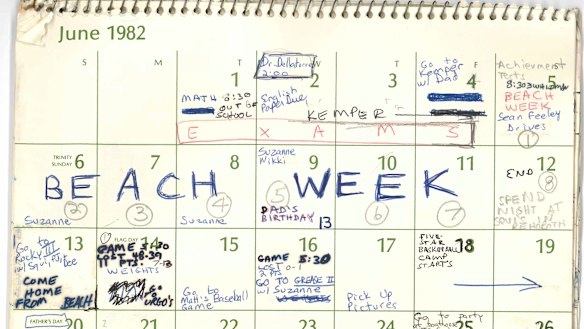 June 1982
S M T W T F S
1
MATH 8:30
OUT OF
SCHOOL
2
2:00
English
Paper Due
3
KEMPER
4
Go to
Kemper
w/ Dad
5
Achievement
Tests
8:30
BEACH
WEEK
Sean Feeley
Drives
1
E X A M S
TRINITY
SUNDAY
6
Suzanne
2
7
3
8
Suzanne
4
9
Suzanne
Nikki
5
DAD'S
BIRTHDAY
10
6
11
7
12
END
8
SPEND
NIGHT AT
BEACH WEEK
13
13
Go to
Rocky III
w/ Squi, PJ,
COME
HOME
FROM BEACH
FLAG DAY
14
GAME 5:30
LOST 48-39
11 PTS.
WEIGHTS
Go
15
Go to
Matt's Baseball
Game
16
GAME 8:30
LOST
2 Pts
GO TO GREASE II
w/ Suzanne
17
Pick Up
Pictures
18
FIVE-
STAR
BASKETBALL
CAMP
STARTS
19
FATHER'S DAY
20
21
22
23
24
25
Go to party
26